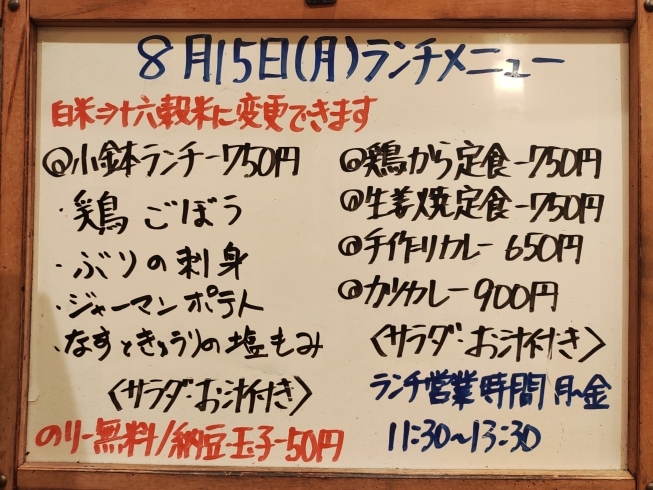 8月15日(月)ランチメニュー
白米⇒十六穀米に変更できます
@小鉢ランチー750円
・鶏ごぼう
・ぶりの刺身
・ジャーマンポテト
・なすときゅうりの塩もみ
〈サラダ・お汁付き〉
のりー無料/納豆・玉子ー50円
@鶏から定食ー750円
@生姜焼定食ー750円
@手作りカレー 650円
@カツカレー 900円
〈サラダ・お汁付き〉
ランチ営業時間 月~金
11:30~13:30